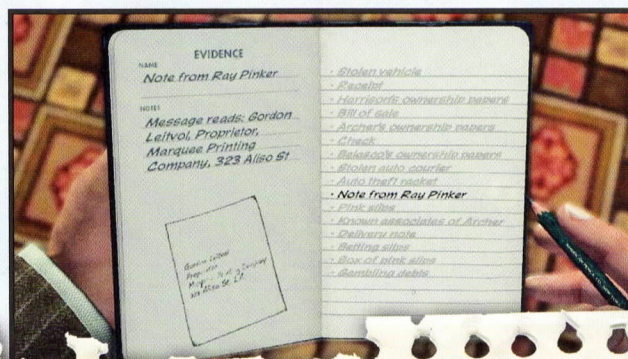 EVIDENCE
NAME
Note from Ray Pinker
NOTES
Message reads: Gordon
Leitvol, Proprietor,
Marquee Printing
Company, 323 Aliso St
Gordon Leitvol
Proprietor
Company
Aliso St.
• Stolen vehicle
• Receipt
• Harrison's ownership papers
• Bill of sale
• Archer's ownership papers
• Check
• Belasco's ownership papers
• Stolen auto courier
• Auto theft racket
• Note from Ray Pinker
• Pink slips
• Known associates of Archer
• Delivery note
• Betting slips
• Box of pink slips
• Gambling debts